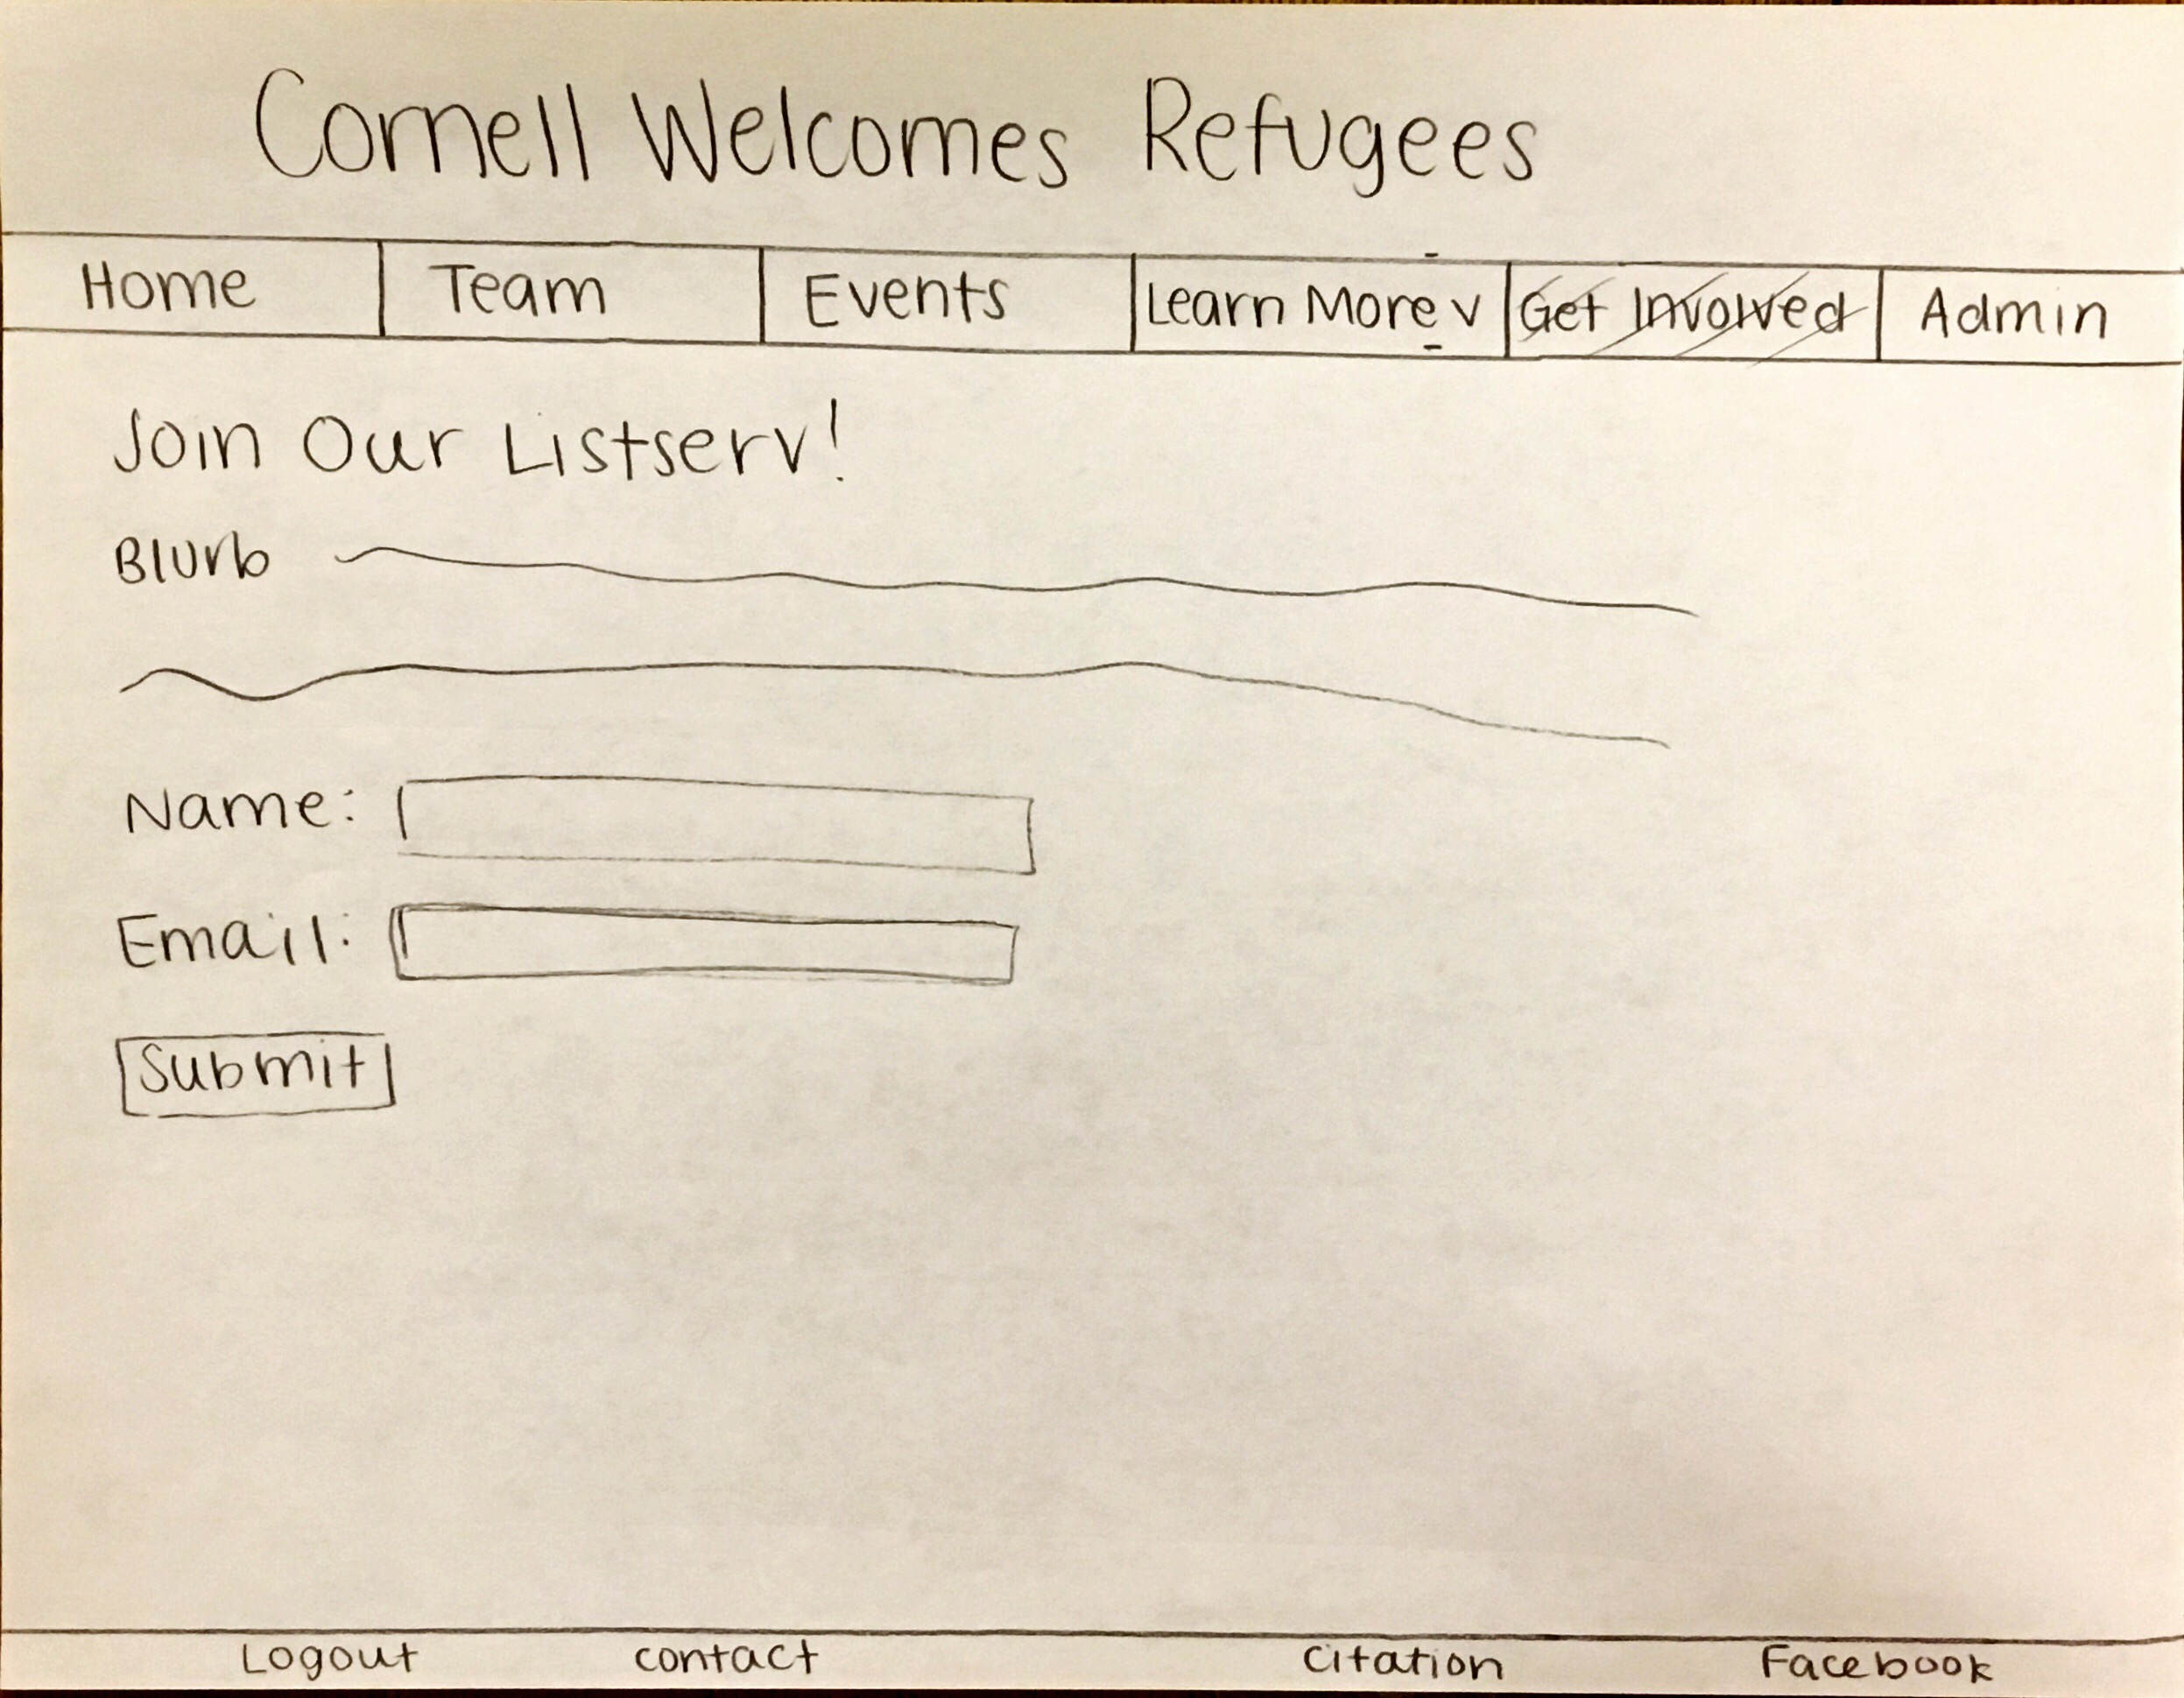 Cornell Welcomes Refugees
Home Team Events Learn More v Get Involved Admin
Join Our Listserv!
Blurb
Name:
Email:
Submit
Logout contact Citation Facebook